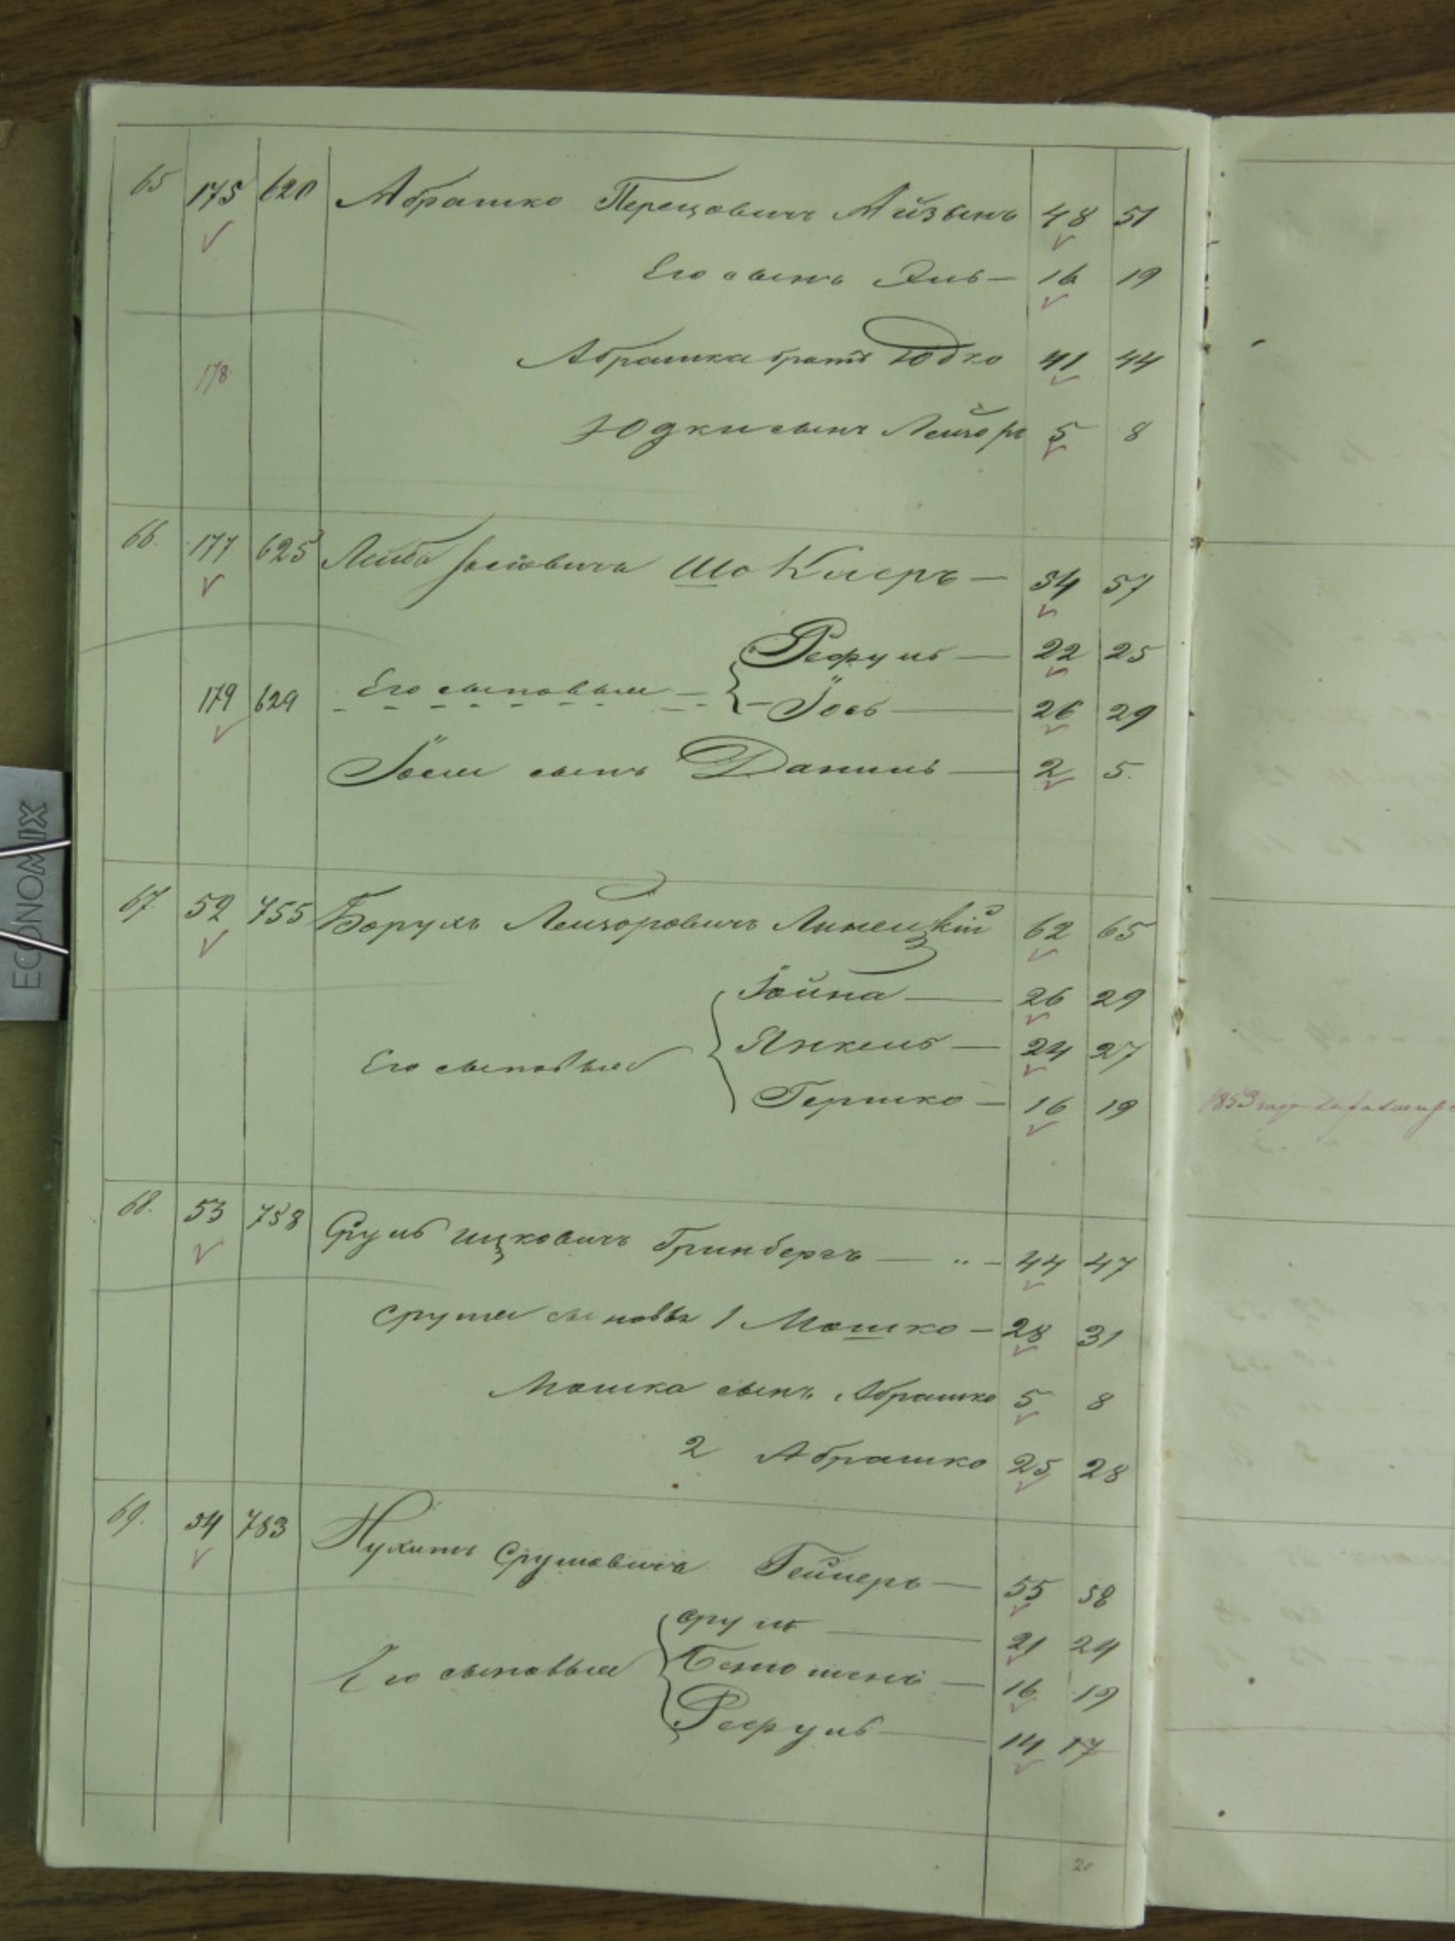 65 175 620 Абрашко Перецовичъ Айзынъ 48 51
Его сынъ Эль — 16 19
178 Абрашка братъ Юдко 41 44
Юдки сынъ Лейзоръ 5 8
66. 177 625 Лейба Іосіовичъ Шоклеръ — 54 57
Рефуль — 22 25
179 629 Его сыновья — Іось — 26 29
Іося сынъ Даниль — 2 5.
67. 52 755 Борухъ Лейзоровичъ Линецкій 62 65
Іойна — 26 29
Его сыновья Янкель — 24 27
Гершко — 16 19
1853 года
68. 53 758 Сруль Ицковичъ Гринбергъ — „ — 44 47
Сруля сыновья 1 Мошко — 28 31
Мошка сынъ Абрашко 5 8
2 Абрашко 25 28
69. 54 783 Нухимъ Срулевичъ Гейлеръ — 55 58
Сруль — 21 24
Его сыновья — 16 19
Рефуль — 14 17
20
ECONOMIX